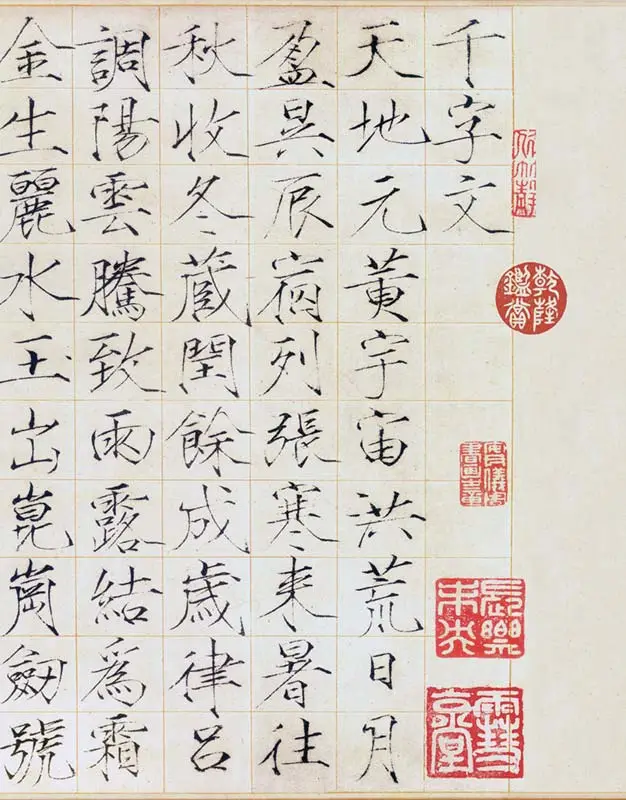 千字文
天地元黄宇宙洪荒日月
盈昃辰宿列張寒来暑往
秋收冬蔵閏餘成歲律吕
調陽雲騰致雨露結爲霜
金生麗水玉出崑崗劒號
乾隆鑑賞
長樂未央